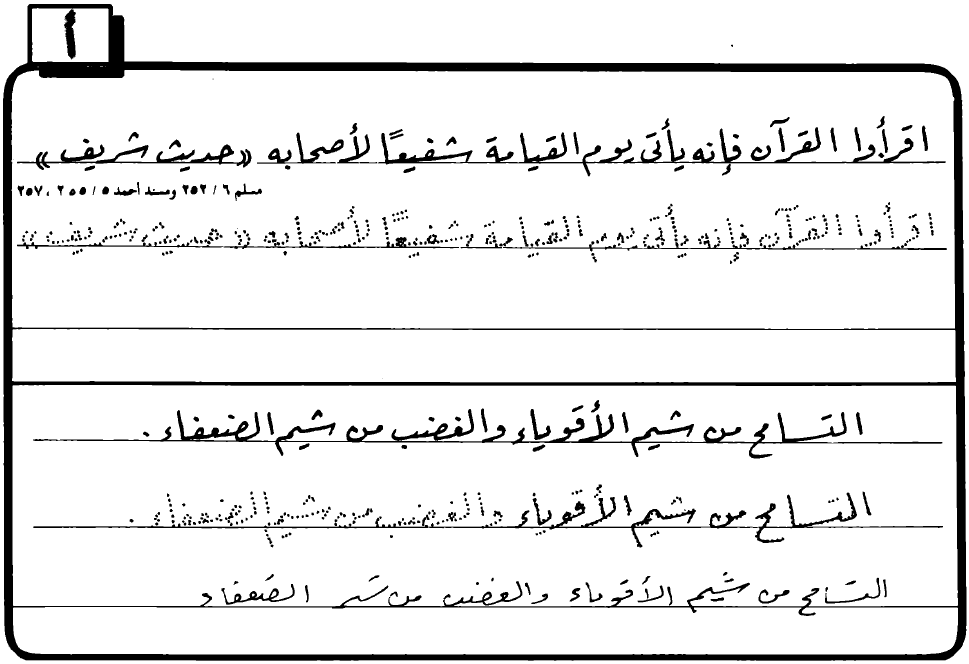 أ
اقرأوا القرآن فإنه يأتى يوم القيامة شفيعًا لأصحابه «حديث شريف»
مسلم ٦ / ٢٥٢ ومسند أحمد ٥ / ٢٥٥ ، ٢٥٧
اقرأوا القرآن فإنه يأتى يوم القيامة شفيعًا لأصحابه «حديث شريف»
التسامح من شيم الأقوياء والغضب من شيم الضعفاء .
التسامح من شيم الأقوياء والغضب من شيم الضعفاء .
التسامح من شيم الأقوياء والغضب من شيم الضعفاء